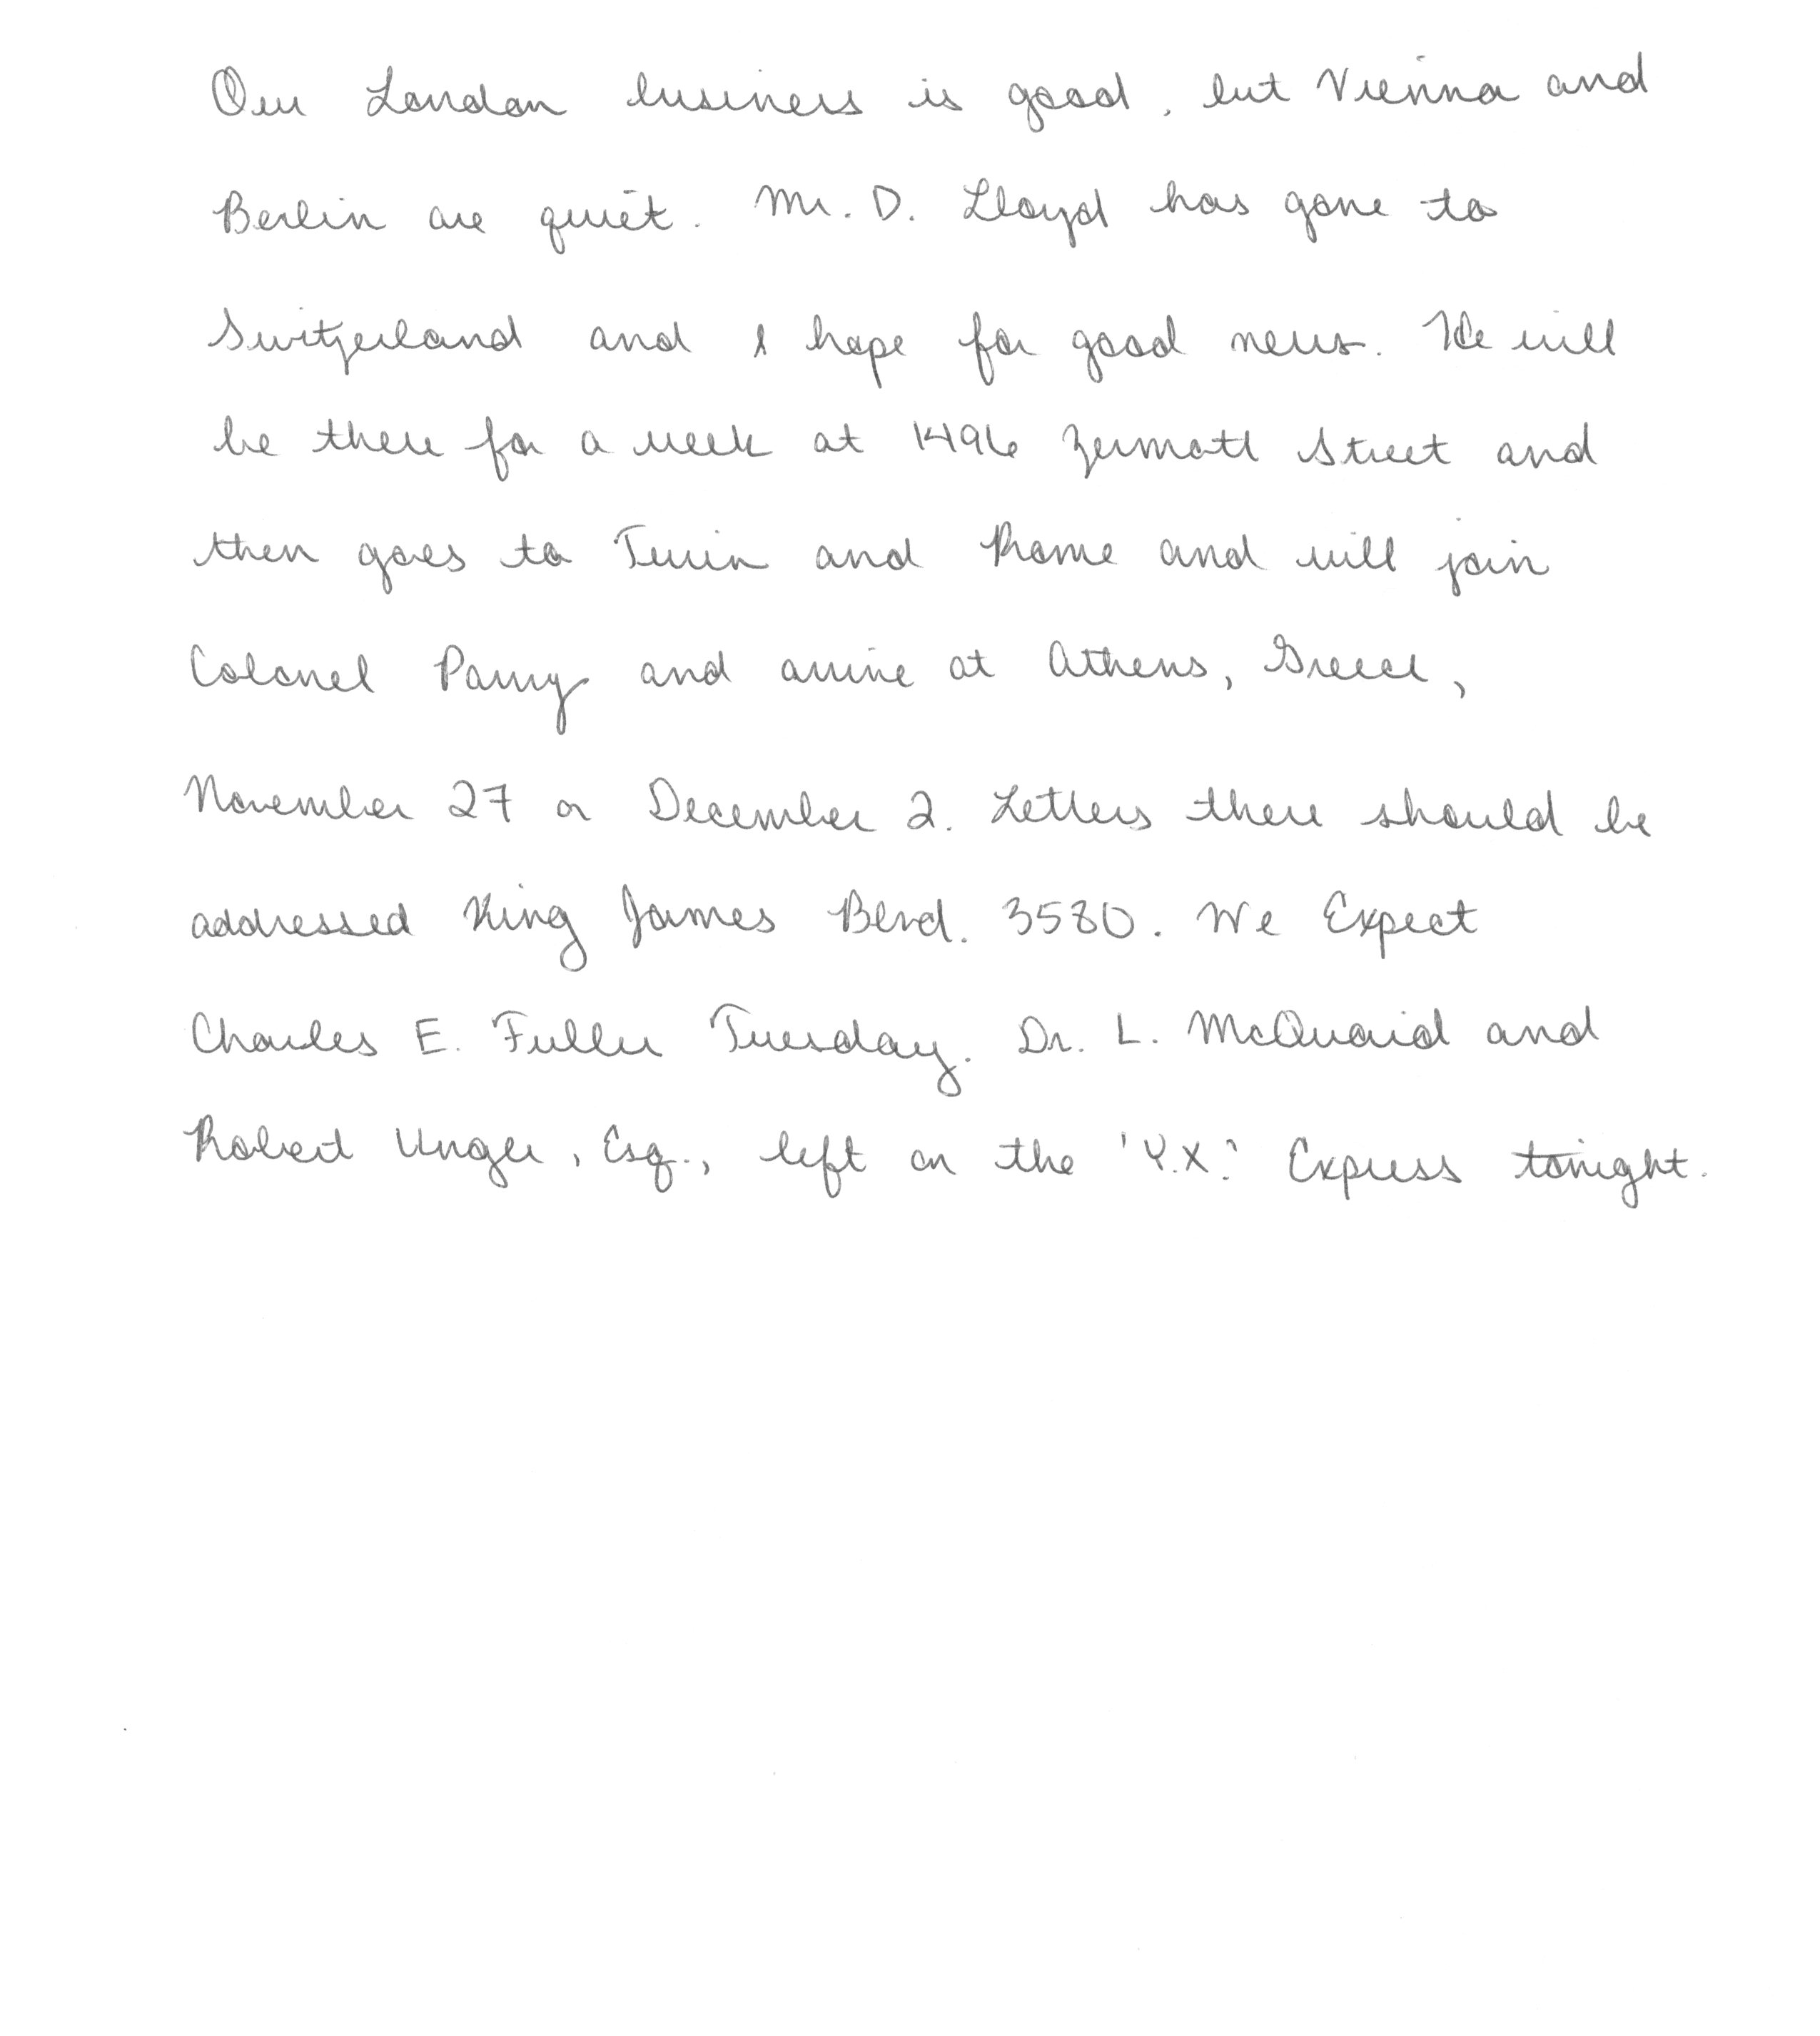 Our London business is good, but Vienna and
Berlin are quiet. Mr. D. Lloyd has gone to
Switzerland and I hope for good news. He will
be there for a week at 1496 Zermatt Street and
then goes to Turin and Rome and will join
Colonel Parry and arrive at Athens, Greece,
November 27 or December 2. Letters there should be
addressed King James Blvd. 3580. We Expect
Charles E. Fuller Tuesday. Dr. L. McQuaid and
Robert Unger, Esq., left on the 'Y.X.' Express tonight.